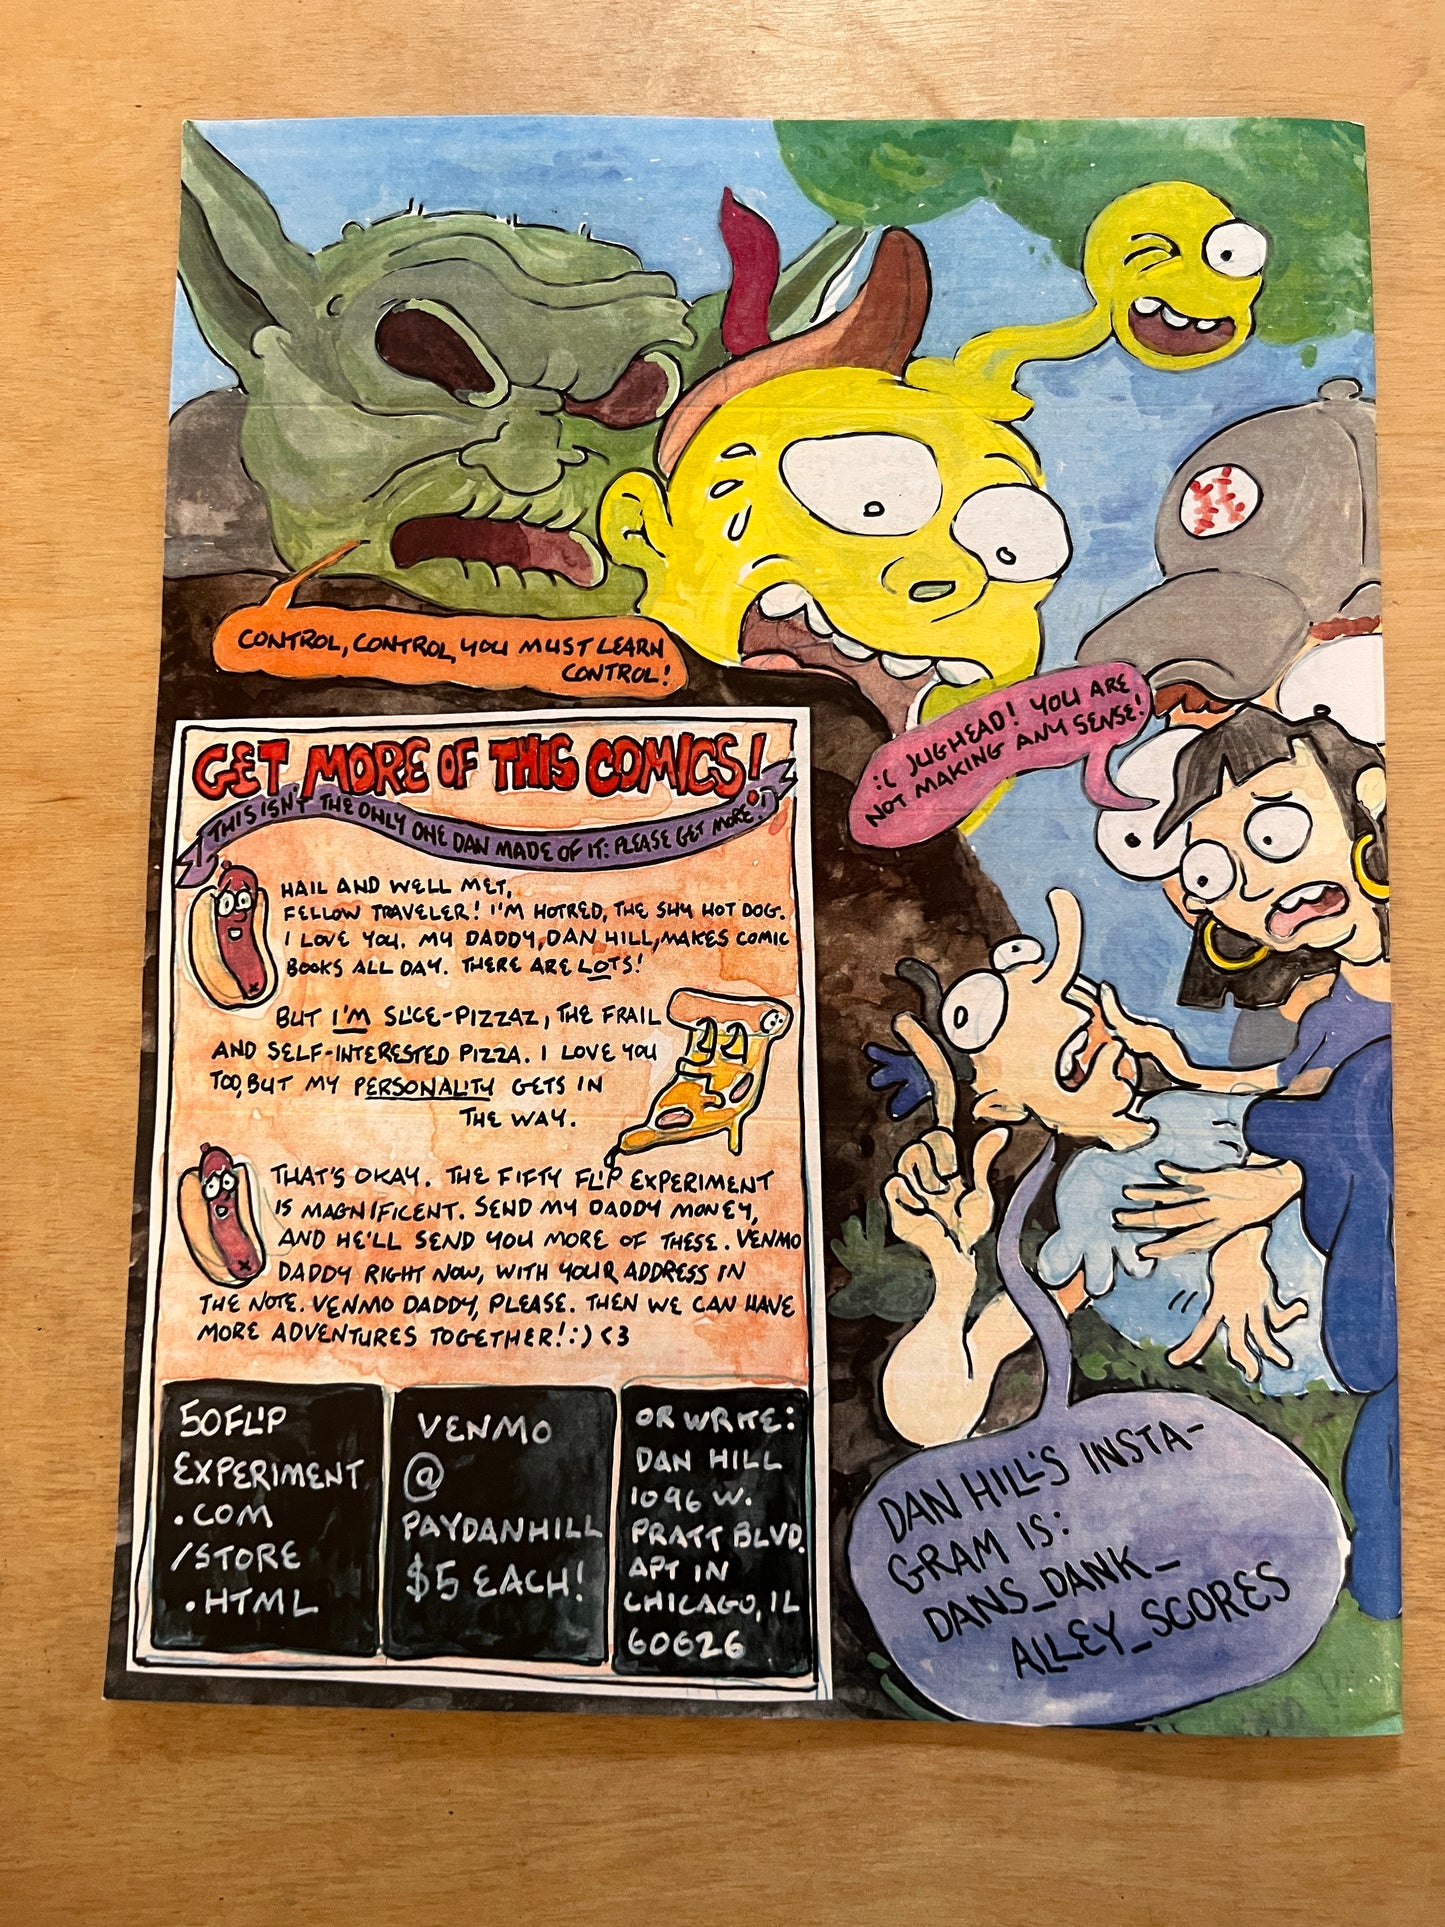 CONTROL, CONTROL, YOU MUST LEARN
CONTROL!
:( JUGHEAD! YOU ARE
NOT MAKING ANY SENSE!
GET MORE OF THIS COMICS!
THIS ISN'T THE ONLY ONE DAN MADE OF IT: PLEASE GET MORE!
HAIL AND WELL MET,
FELLOW TRAVELER! I'M HOTRED, THE SHY HOT DOG.
I LOVE YOU. MY DADDY, DAN HILL, MAKES COMIC
BOOKS ALL DAY. THERE ARE LOTS!
BUT I'M SLICE-PIZZAZ, THE FRAIL
AND SELF-INTERESTED PIZZA. I LOVE YOU
TOO, BUT MY PERSONALITY GETS IN
THE WAY.
THAT'S OKAY. THE FIFTY FLIP EXPERIMENT
IS MAGNIFICENT. SEND MY DADDY MONEY,
AND HE'LL SEND YOU MORE OF THESE. VENMO
DADDY RIGHT NOW, WITH YOUR ADDRESS IN
THE NOTE. VENMO DADDY, PLEASE. THEN WE CAN HAVE
MORE ADVENTURES TOGETHER! :) <3
50FLIP
EXPERIMENT
.COM
/STORE
.HTML
VENMO
@
PAYDANHILL
$5 EACH!
OR WRITE:
DAN HILL
1096 W.
PRATT BLVD.
APT IN
CHICAGO, IL
60626
DAN HILL'S INSTA-
GRAM IS:
DANS_DANK_
ALLEY_SCORES